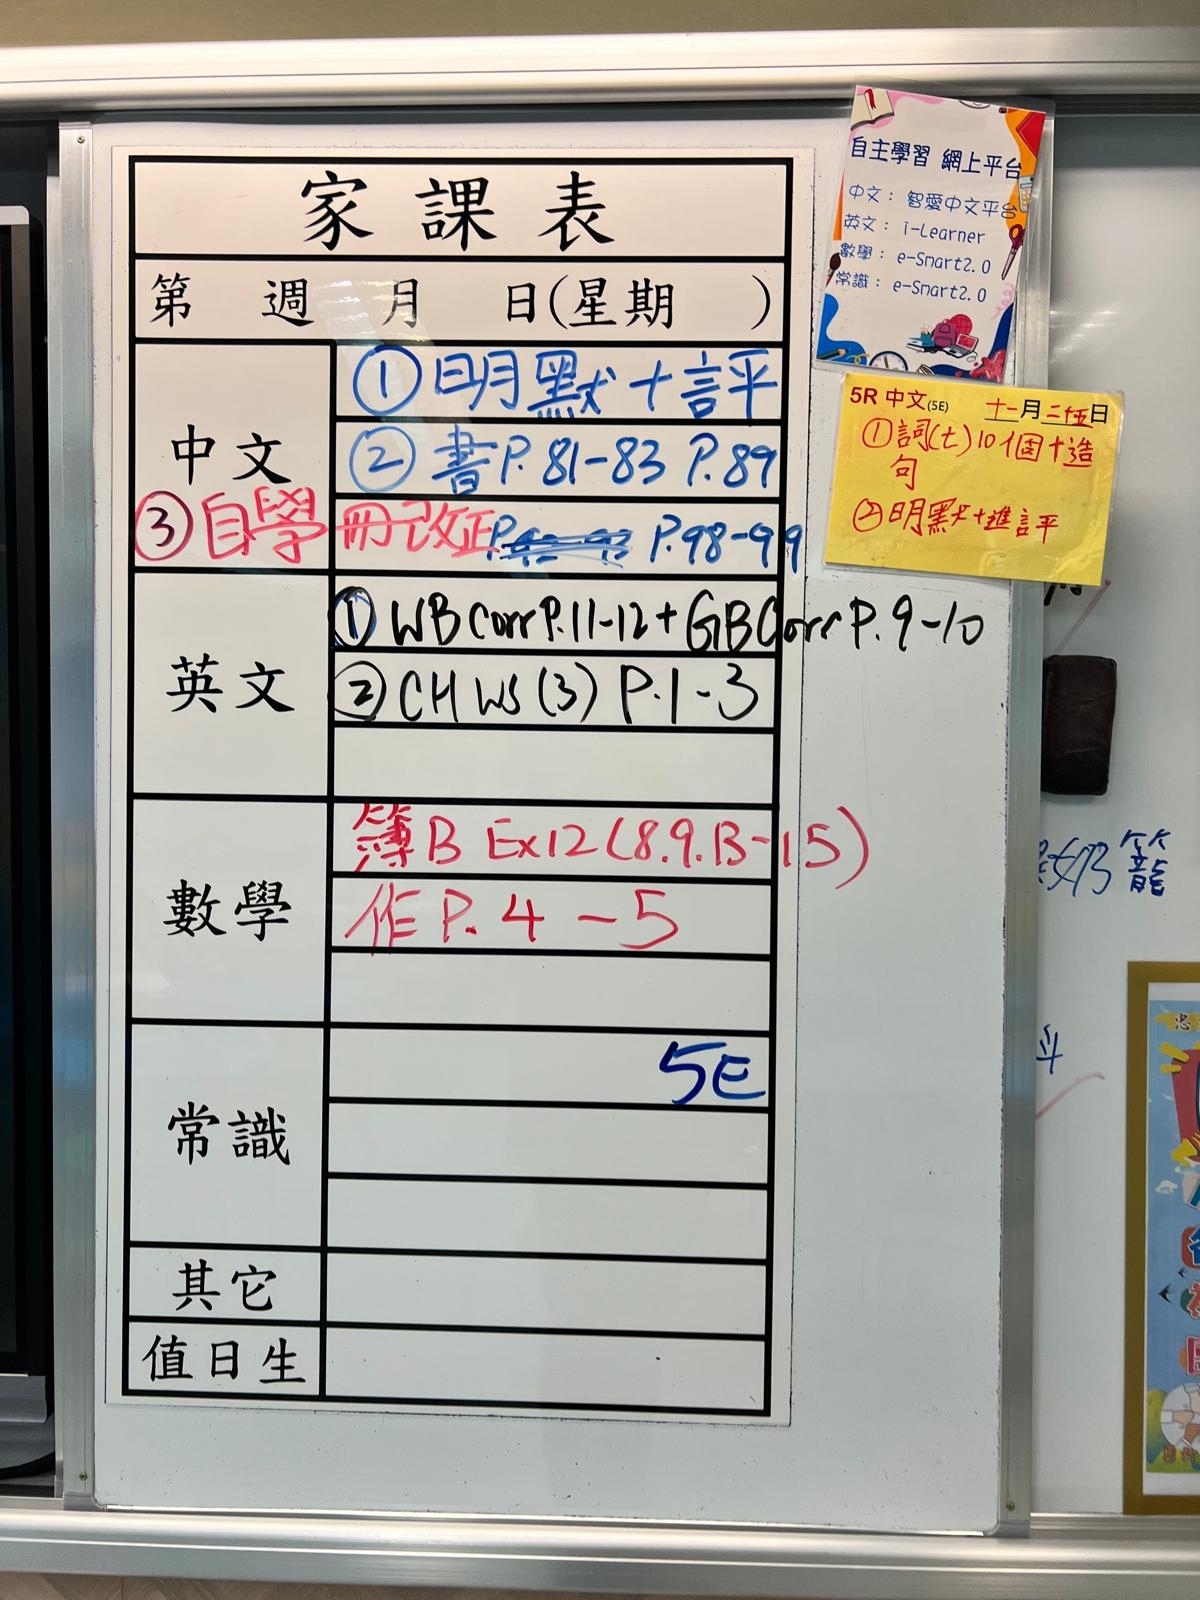 家課表
第 週 月 日(星期 )
中文
①明默+評
②書P.81-83 P.89
③自學冊改正P. P.98-99
英文
①WB Corr P.11-12+GB Corr P.9-10
②CH WS (3) P.1-3
數學
簿B Ex12(8.9.13-15)
作P.4-5
常識
5E
其它
值日生
1
自主學習 網上平台
中文：智愛中文平台
英文：i-Learner
數學：e-Smart2.0
常識：e-Smart2.0
5R 中文(5E) 十一月二十五日
①詞(七)10個+造
句
②明默+進評
籠
斗